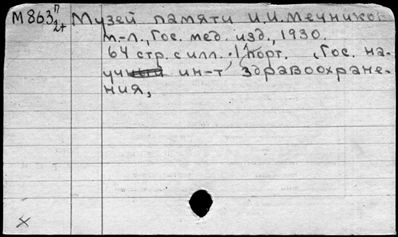 М863 п/2т Музей памяти И.И.Мечников
м.-л., Гос. мед. изд., 1930.
64 стр. с илл. 1 порт. (Гос. на-
учный ин-т здравоохране-
ния,
х